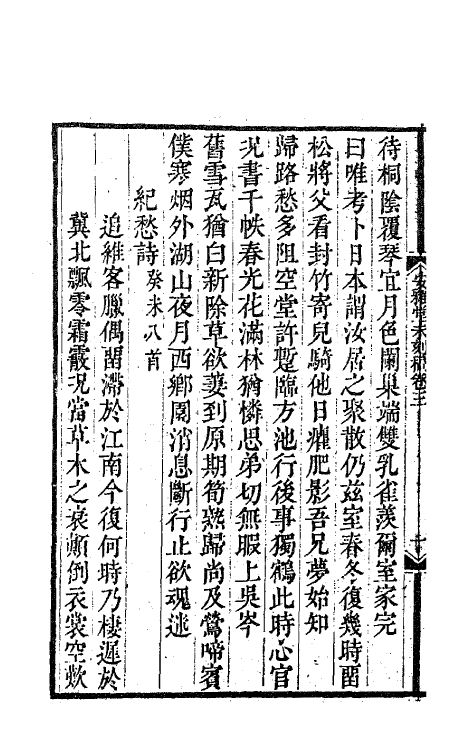 待桐陰覆琴宜月色闌巢端雙乳雀羨爾室家完
曰唯考卜日本謂汝居之聚散仍兹室春冬復幾時畱
松將父看封竹寄兒騎他日癯肥影吾兄夢始知
歸路愁多阻空堂許蹔臨方池行後事獨鶴此時心官
況書千帙春光花滿林猶憐思弟切無暇上吳岑
舊雪瓦猶白新除草欲蔞到原期筍熟歸尚及鶯啼賓
僕寒烟外湖山夜月西鄉園消息斷行止欲魂迷
紀愁詩癸未八首
追維客臘偶畱滯於江南今復何時乃棲遲於
冀北飄零霜霰況當草木之衰顛倒衣裳空歎
安雅堂未刻稿卷三